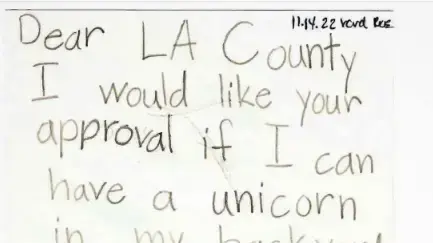 11.14.22 rcvd
Dear LA County
I would like your
approval if I can
have a unicorn
in my backyard